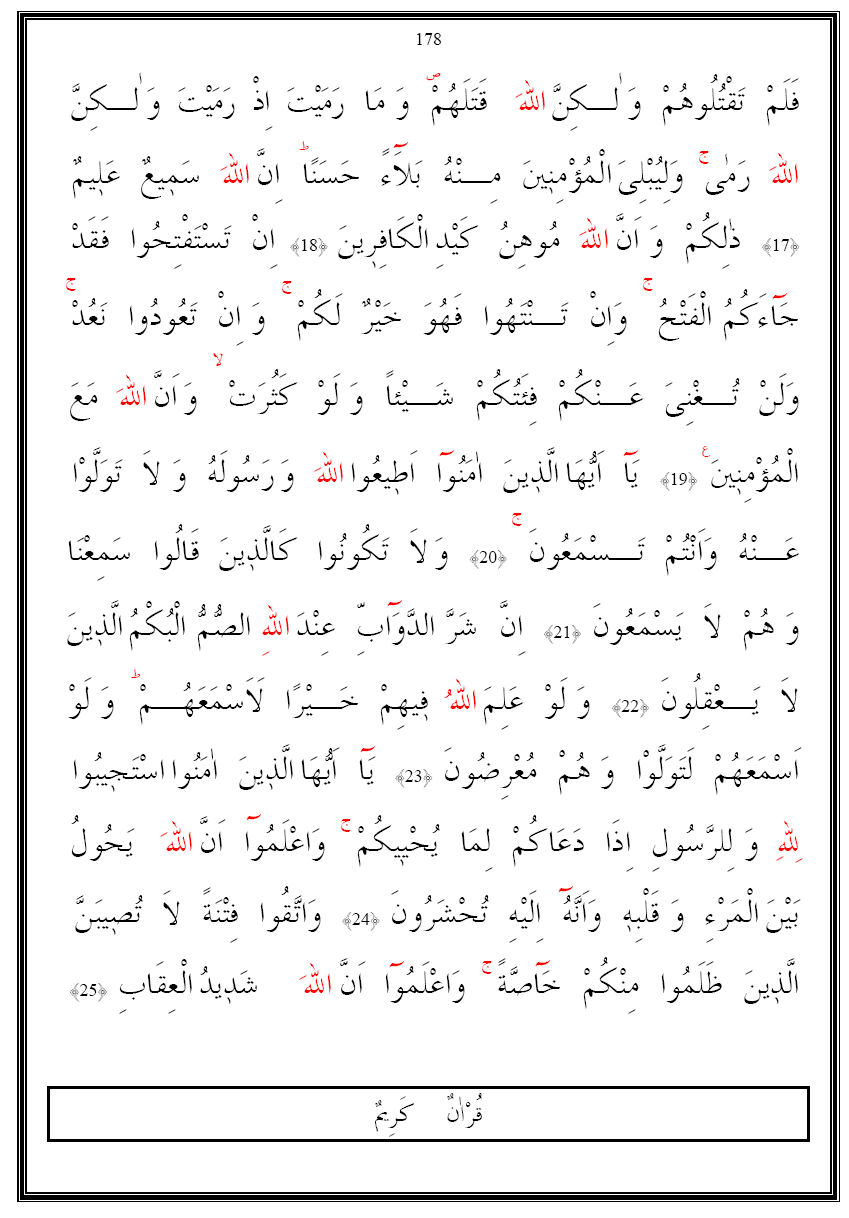 178
فَلَمْ تَقْتُلُوهُمْ وَلٰـكِنَّ اللهَ قَتَلَهُمْۖ وَمَا رَمَيْتَ اِذْ رَمَيْتَ وَلٰـكِنَّ
اللهَ رَمٰىۚ وَلِيُبْلِىَ الْمُؤْمِنٖينَ مِـنْهُ بَلآءً حَسَنًاؕ اِنَّ اللهَ سَمٖيعٌ عَلٖيمٌ
﴿17﴾ ذٰلِكُمْ وَاَنَّ اللهَ مُوهِنُ كَيْدِ الْكَافِرٖينَ ﴿18﴾ اِنْ تَسْتَفْتِحُوا فَقَدْ
جَآءَكُمُ الْفَتْحُۚ وَاِنْ تَـنْتَهُوا فَهُوَ خَيْرٌ لَكُمْۚ وَاِنْ تَعُودُوا نَعُدْۚ
وَلَنْ تُـغْنِىَ عَـنْكُمْ فِئَتُكُمْ شَـيْئاً وَلَوْ كَثُرَتْۙ وَاَنَّ اللهَ مَعَ
الْمُؤْمِنٖينَ ع ﴿19﴾ يَآ اَيُّهَا الَّذٖينَ اٰمَنُوآ اَطٖيعُوا اللهَ وَرَسُولَهُ وَلاَ تَوَلَّوْا
عَـنْهُ وَاَنْتُمْ تَـسْمَعُونَۚ ﴿20﴾ وَلاَ تَكُونُوا كَالَّذٖينَ قَالُوا سَمِعْنَا
وَهُمْ لاَ يَسْمَعُونَ ﴿21﴾ اِنَّ شَرَّ الدَّوَآبِّ عِنْدَ اللهِ الصُّمُّ الْبُكْمُ الَّذٖينَ
لاَ يَـعْقِلُونَ ﴿22﴾ وَلَوْ عَلِمَ اللهُ فٖيهِمْ خَـيْرًا لَاَسْمَعَهُـمْؕ وَلَوْ
اَسْمَعَهُمْ لَتَوَلَّوْا وَهُمْ مُعْرِضُونَ ﴿23﴾ يَآ اَيُّهَا الَّذٖينَ اٰمَنُوا اسْتَجٖيبُوا
لِلّٰهِ وَلِلرَّسُولِ اِذَا دَعَاكُمْ لِمَا يُحْيٖيكُمْۚ وَاعْلَمُوآ اَنَّ اللهَ يَحُولُ
بَيْنَ الْمَرْءِ وَقَلْبِهٖ وَاَنَّهُٓ اِلَيْهِ تُحْشَرُونَ ﴿24﴾ وَاتَّقُوا فِتْنَةً لاَ تُصٖيبَنَّ
الَّذٖينَ ظَلَمُوا مِنْكُمْ خَآصَّةًۚ وَاعْلَمُوآ اَنَّ اللهَ شَدٖيدُ الْعِقَابِ ﴿25﴾
قُرْاٰنٌ كَرٖيمٌ